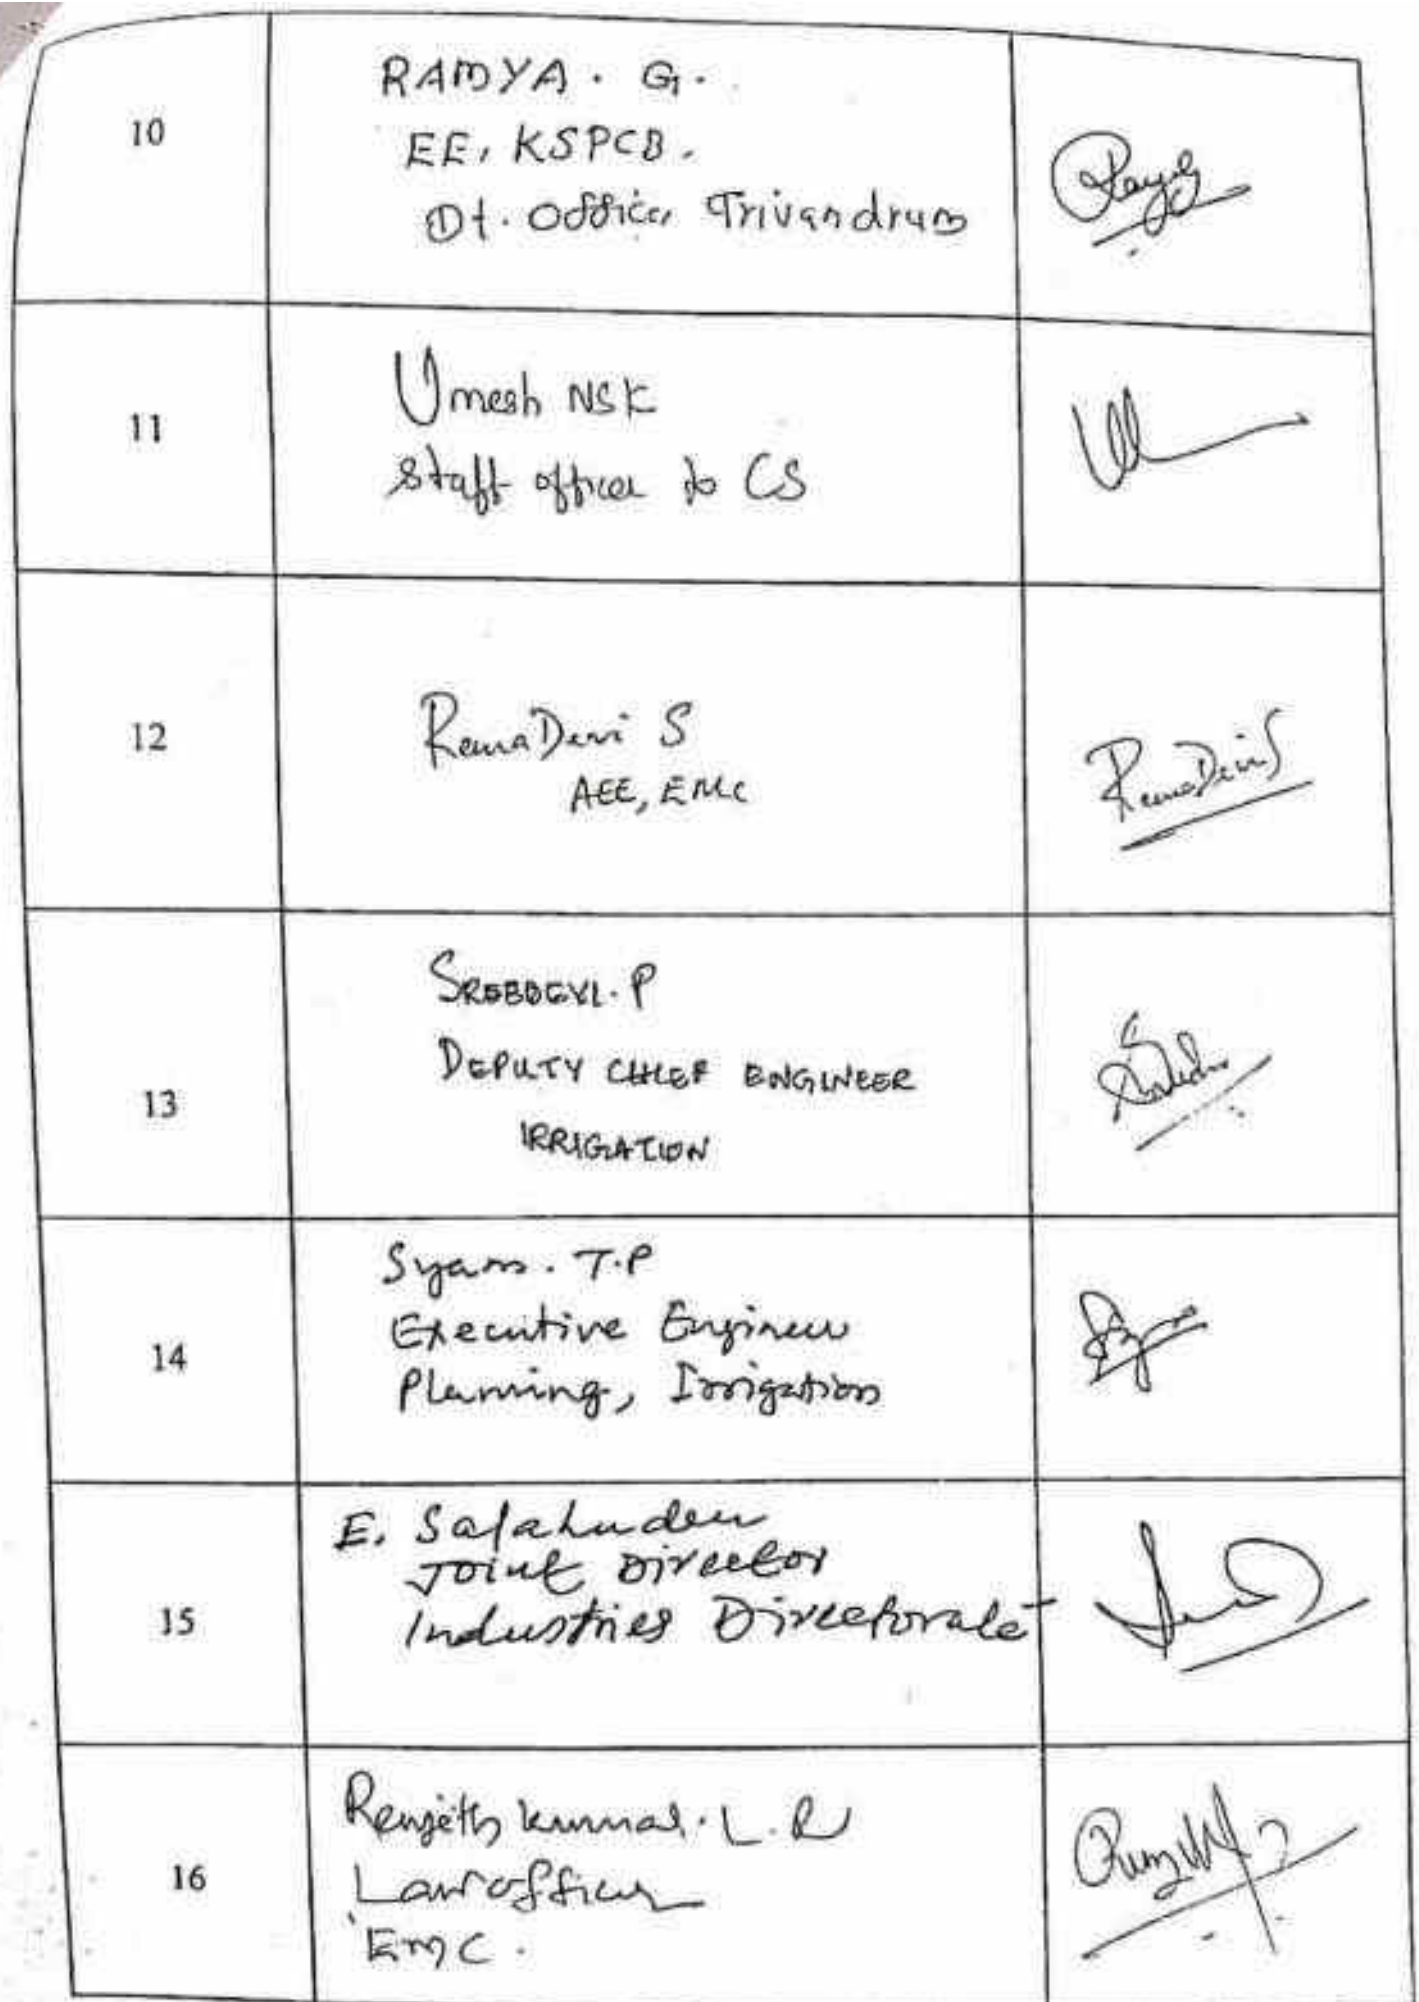 10
RAMYA. G.
EE, KSPCB.
Dt. Office, Trivandrum
11
Umesh NSK
Staff officer to CS
12
RemaDevi S
AEE, EMC
RemaDevi S
13
SREEDEVI. P
DEPUTY CHIEF ENGINEER
IRRIGATION
14
Syam. T.P
Executive Engineer
Planning, Irrigation
15
E. Salahudeen
Joint Director
Industries Directorate
16
Renjith kumar. L. R
Law officer
EMC.